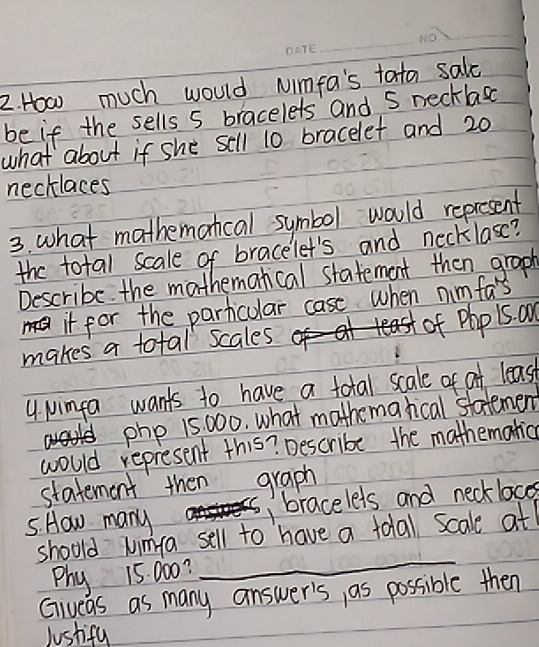 DATE NO.
2. How much would Nimfa's tata sale
be if the sells 5 bracelets and 5 necklasc
what about if she sell 10 bracelet and 20
necklaces
3. what mathematical symbol would represent
the total scale of bracelet's and necklasc?
Describe the mathematical statement then graph
it for the particular case when nimfa's
makes a total scales of at least of Php 15.000
4. Nimfa wants to have a total scale of at least
would php 15.000. what mathematical statement
would represent this? Describe the mathematica
statement then graph
5. How many answers, bracelets and necklaces
should Nimfa sell to have a total scale at l
Phy 15.000?
Giveas as many answer's, as possible then
Justify